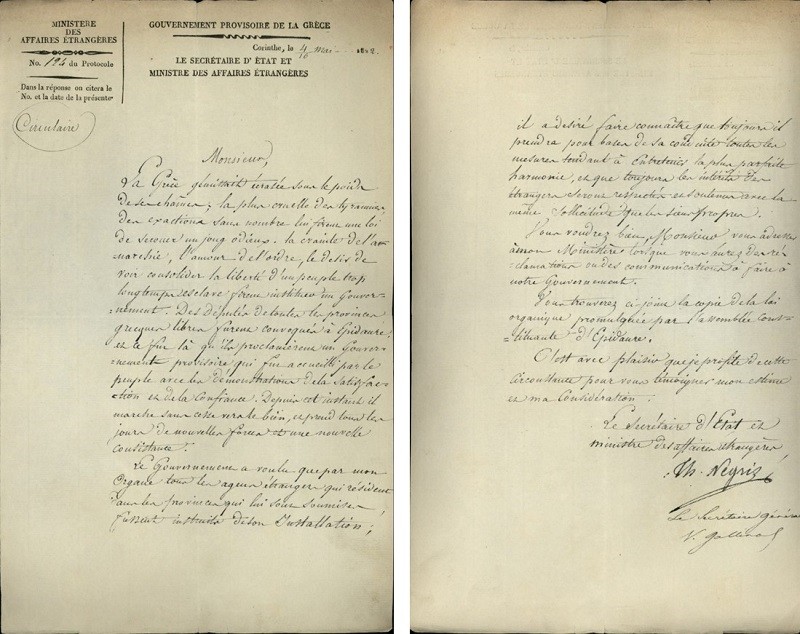 MINISTERE
DES
AFFAIRES ÉTRANGÈRES
No. 124 du Protocole
Dans la réponse on citera le
No. et la date de la présente
Circulaire
GOUVERNEMENT PROVISOIRE DE LA GRÈCE
Corinthe, le 4/16 Mai 1822.
LE SECRÉTAIRE D'ÉTAT ET
MINISTRE DES AFFAIRES ÉTRANGÈRES
Monsieur,
La Grèce gémissait écrasée sous le poids
de ses chaines; la plus cruelle des tyrannies,
des exactions sans nombre lui firent une loi
de secouer un joug odieux. la crainte de l'a-
narchie, l'amour de l'ordre, le desir de
voir consolider la liberté d'un peuple trop
longtemps esclave firent instituer un Gouver-
=nement. Des députés de toutes les provinces
grecques libres furent convoqués à Epidaure,
et ce fut là qu'ils proclamèrent un Gouver-
=nement provisoire qui fut accueilli par le
peuple avec les démonstrations de la satisfac-
tion et de la Confiance. Depuis cet instant il
marche sans cesse vers le bien, et prend tous les
jours de nouvelles forces et une nouvelle
consistance.
Le Gouvernement a voulu que par mon
Organe tous les agens étrangers qui résident
dans les provinces qui lui sont soumises
fussent instruits de son Installation;
il a desiré faire connaître que toujours il
prendra pour bases de sa conduite toutes les
mesures tendant à entretenir la plus parfaite
harmonie, et que toujours les intérêts des
étrangers seront respectés et soutenus avec la
même sollicitude que les siens propres.
Vous voudrez bien, Monsieur vous adresser
à mon Ministère lorsque vous aurez des ré-
clamations ou des communications à faire à
notre Gouvernement.
Vous trouverez ci-joint la copie de la loi
organique promulguée par l'assemblée Cons-
=tituante d'Epidaure.
C'est avec plaisir que je profite de cette
circonstance pour vous témoigner mon estime
et ma Considération.
Le Secrétaire d'Etat et
ministre des affaires étrangères
Th. Negris
Le Secrétaire général
V. Gallina